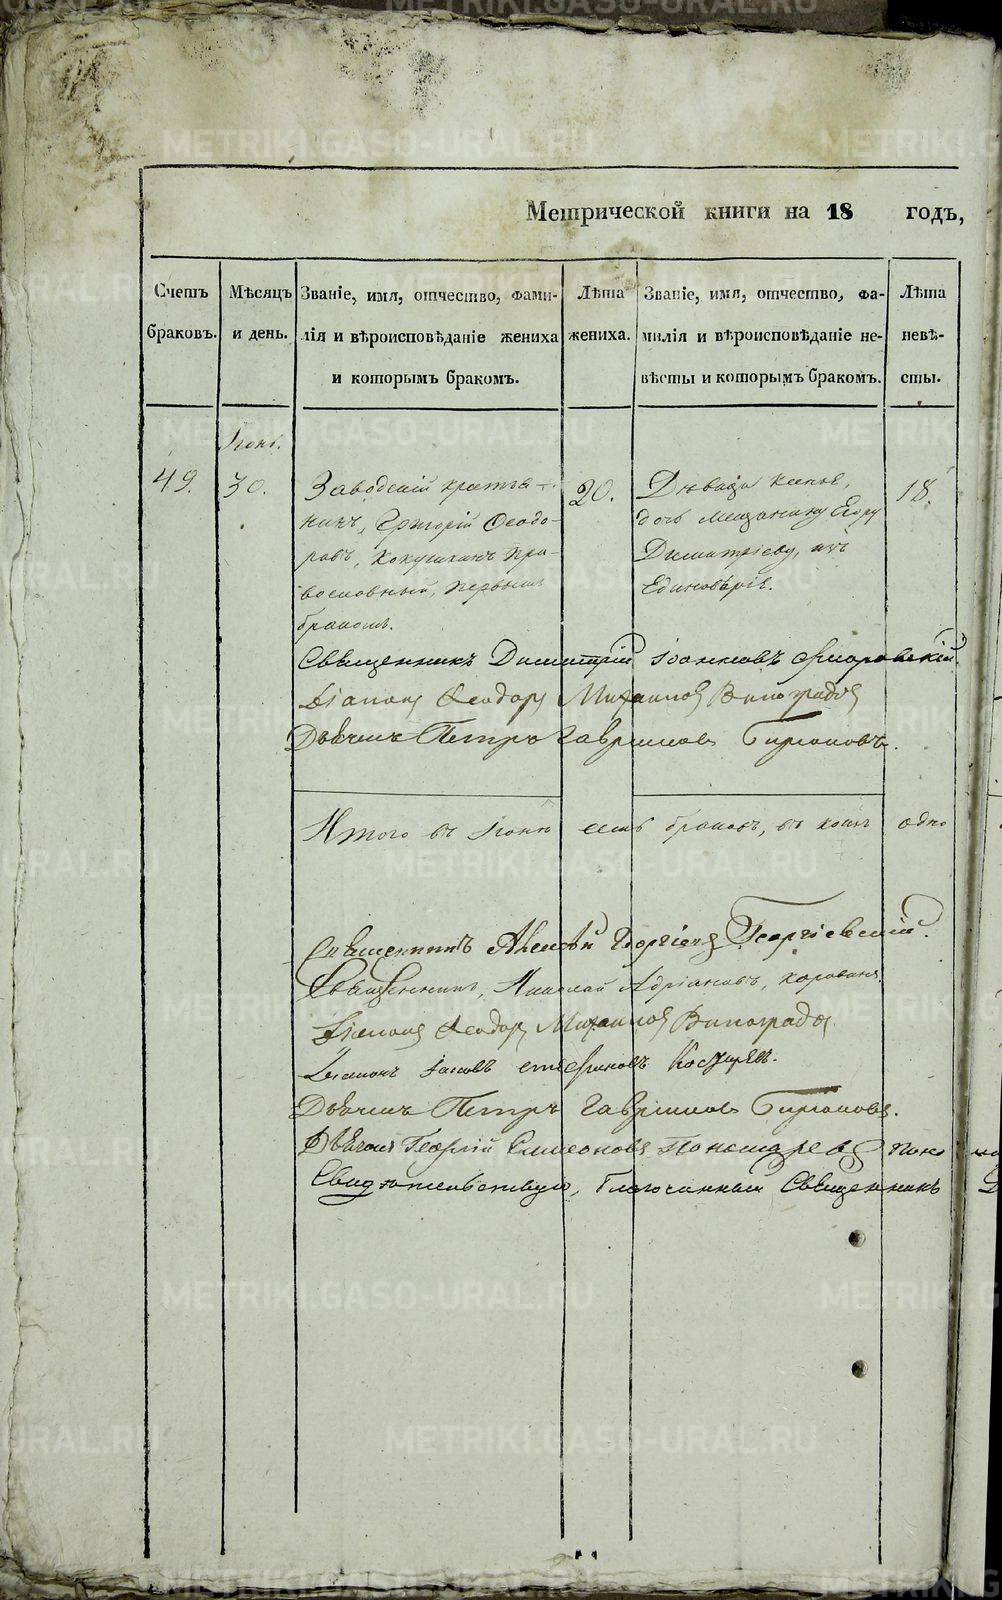 METRIKI.GASO-URAL.RU
Метрической книги на 18 годъ,
Счетъ браковъ.
Мѣсяцъ и день.
Званіе, имя, отчество, фами-
лія и вѣроисповѣданіе жениха
и которымъ бракомъ.
Лѣта жениха.
Званіе, имя, отчество, фа-
милія и вѣроисповѣданіе не-
вѣсты и которымъ бракомъ.
Лѣта невѣ-
сты.
49.
30.
Заводскій
Григорій Ѳеодо-
ровъ, пра-
вославный, первымъ
бракомъ.
20.
Дѣвица
дочь Мещанину Егору
Димитріеву, изъ
Единовѣрія.
18.
Священникъ Димитрій Іоанновъ
Діаконъ Ѳеодоръ Михаиловъ Виноградовъ
Дьячекъ Петръ Гавриловъ
Итого въ Іюнѣ семь браковъ, въ коихъ одно
Священникъ Алексѣй Георгіевъ Георгіевскій.
Священникъ, Николай Адріановъ,
Діаконъ Ѳеодоръ Михаиловъ Виноградовъ
Діаконъ Іаковъ
Дьячекъ Петръ Гавриловъ
Дьячекъ Георгій Симеоновъ Пономаревъ
Свидѣтельствую, Благочинный Священникъ